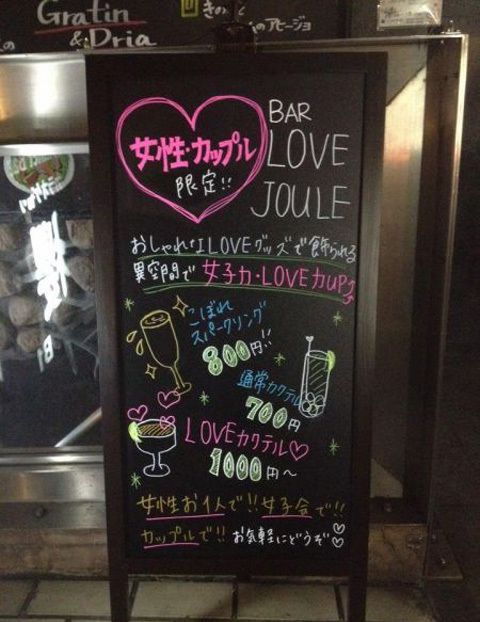 Gratin
& Dria
きのこ
のアヒージョ
女性・カップル
限定!!
BAR
LOVE
JOULE
おしゃれなI LOVEグッズで飾られる
異空間で 女子力・LOVE力UP
こぼれ
スパークリング
800円!!
通常カクテル
700円
LOVEカクテル
1000円〜
女性お1人で!! 女子会で!!
カップルで!! お気軽にどうぞ